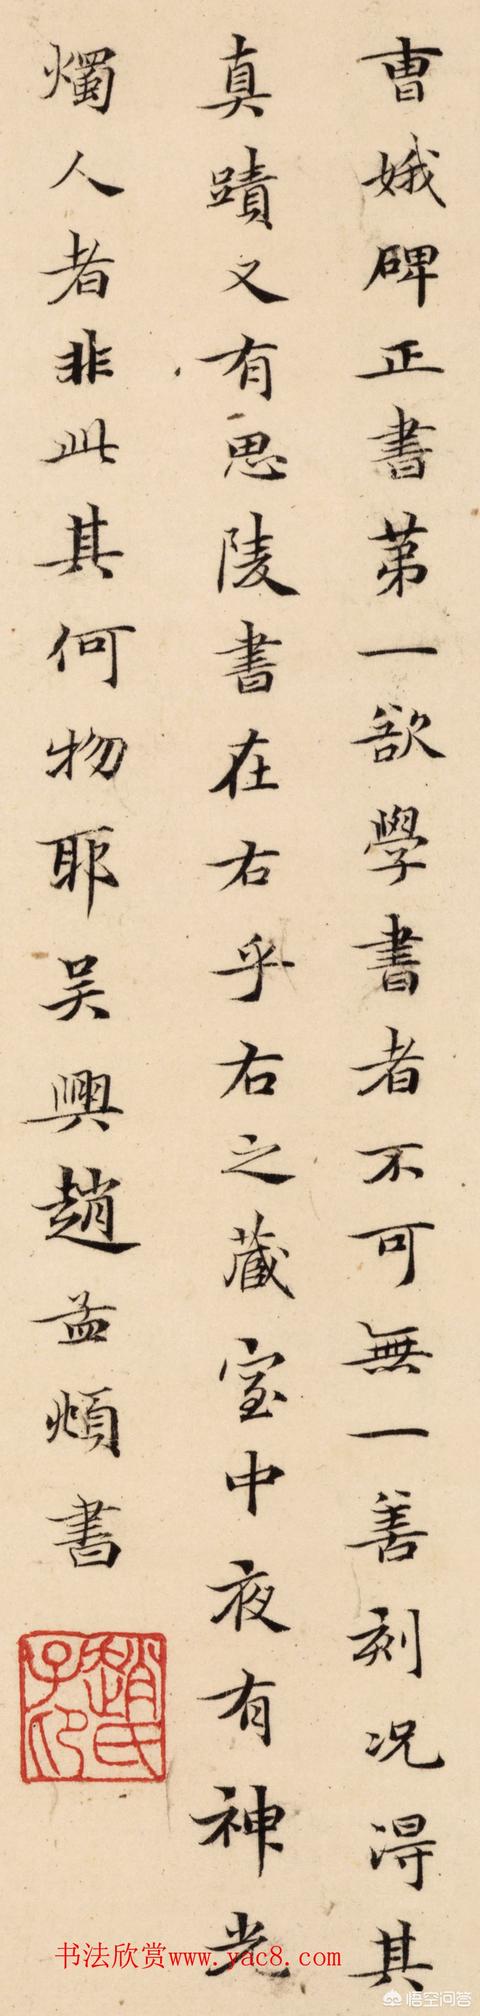 曺娥碑正書苐一欲學書者不可無一善刻况淂其
真蹟又有思陵書在右乎右之蔵室中夜有神光
燭人者非此其何物耶吴興趙孟頫書
趙氏子印
书法欣赏www.yac8.com
悟空问答